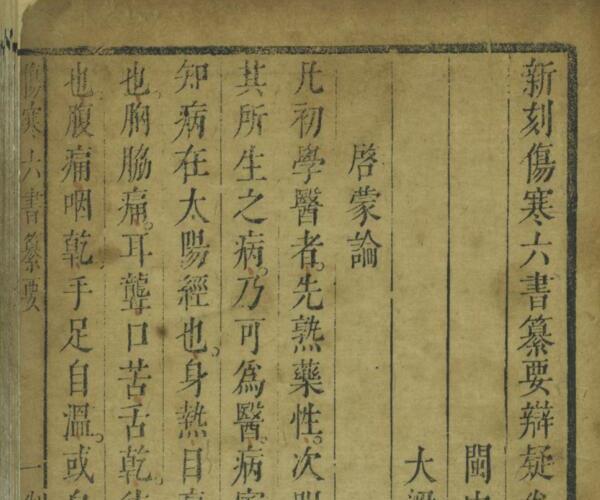 新刻傷寒六書纂要辯疑
閩
大
啓蒙論
凡初學醫者。先熟藥性。次明
其所生之病。乃可爲醫。病
知病在太陽經也。身熱目
也。胸脇痛。耳聾口苦舌乾。
也腹痛咽乾手足自溫。或
傷寒六書纂要 一